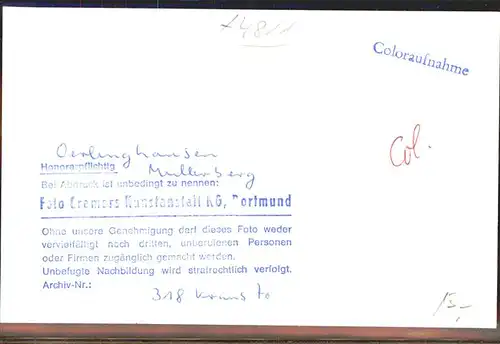 +4811
Coloraufnahme
Col.
Oerlinghausen
Honorarpflichtig
Bei Abdruck ist unbedingt zu nennen:
Foto Cramers Kunstanstalt KG, Dortmund
Ohne unsere Genehmigung darf dieses Foto weder
vervielfältigt noch dritten, unberufenen Personen
oder Firmen zugänglich gemacht werden.
Unbefugte Nachbildung wird strafrechtlich verfolgt.
Archiv-Nr.:
318 Kraus 70
15,-